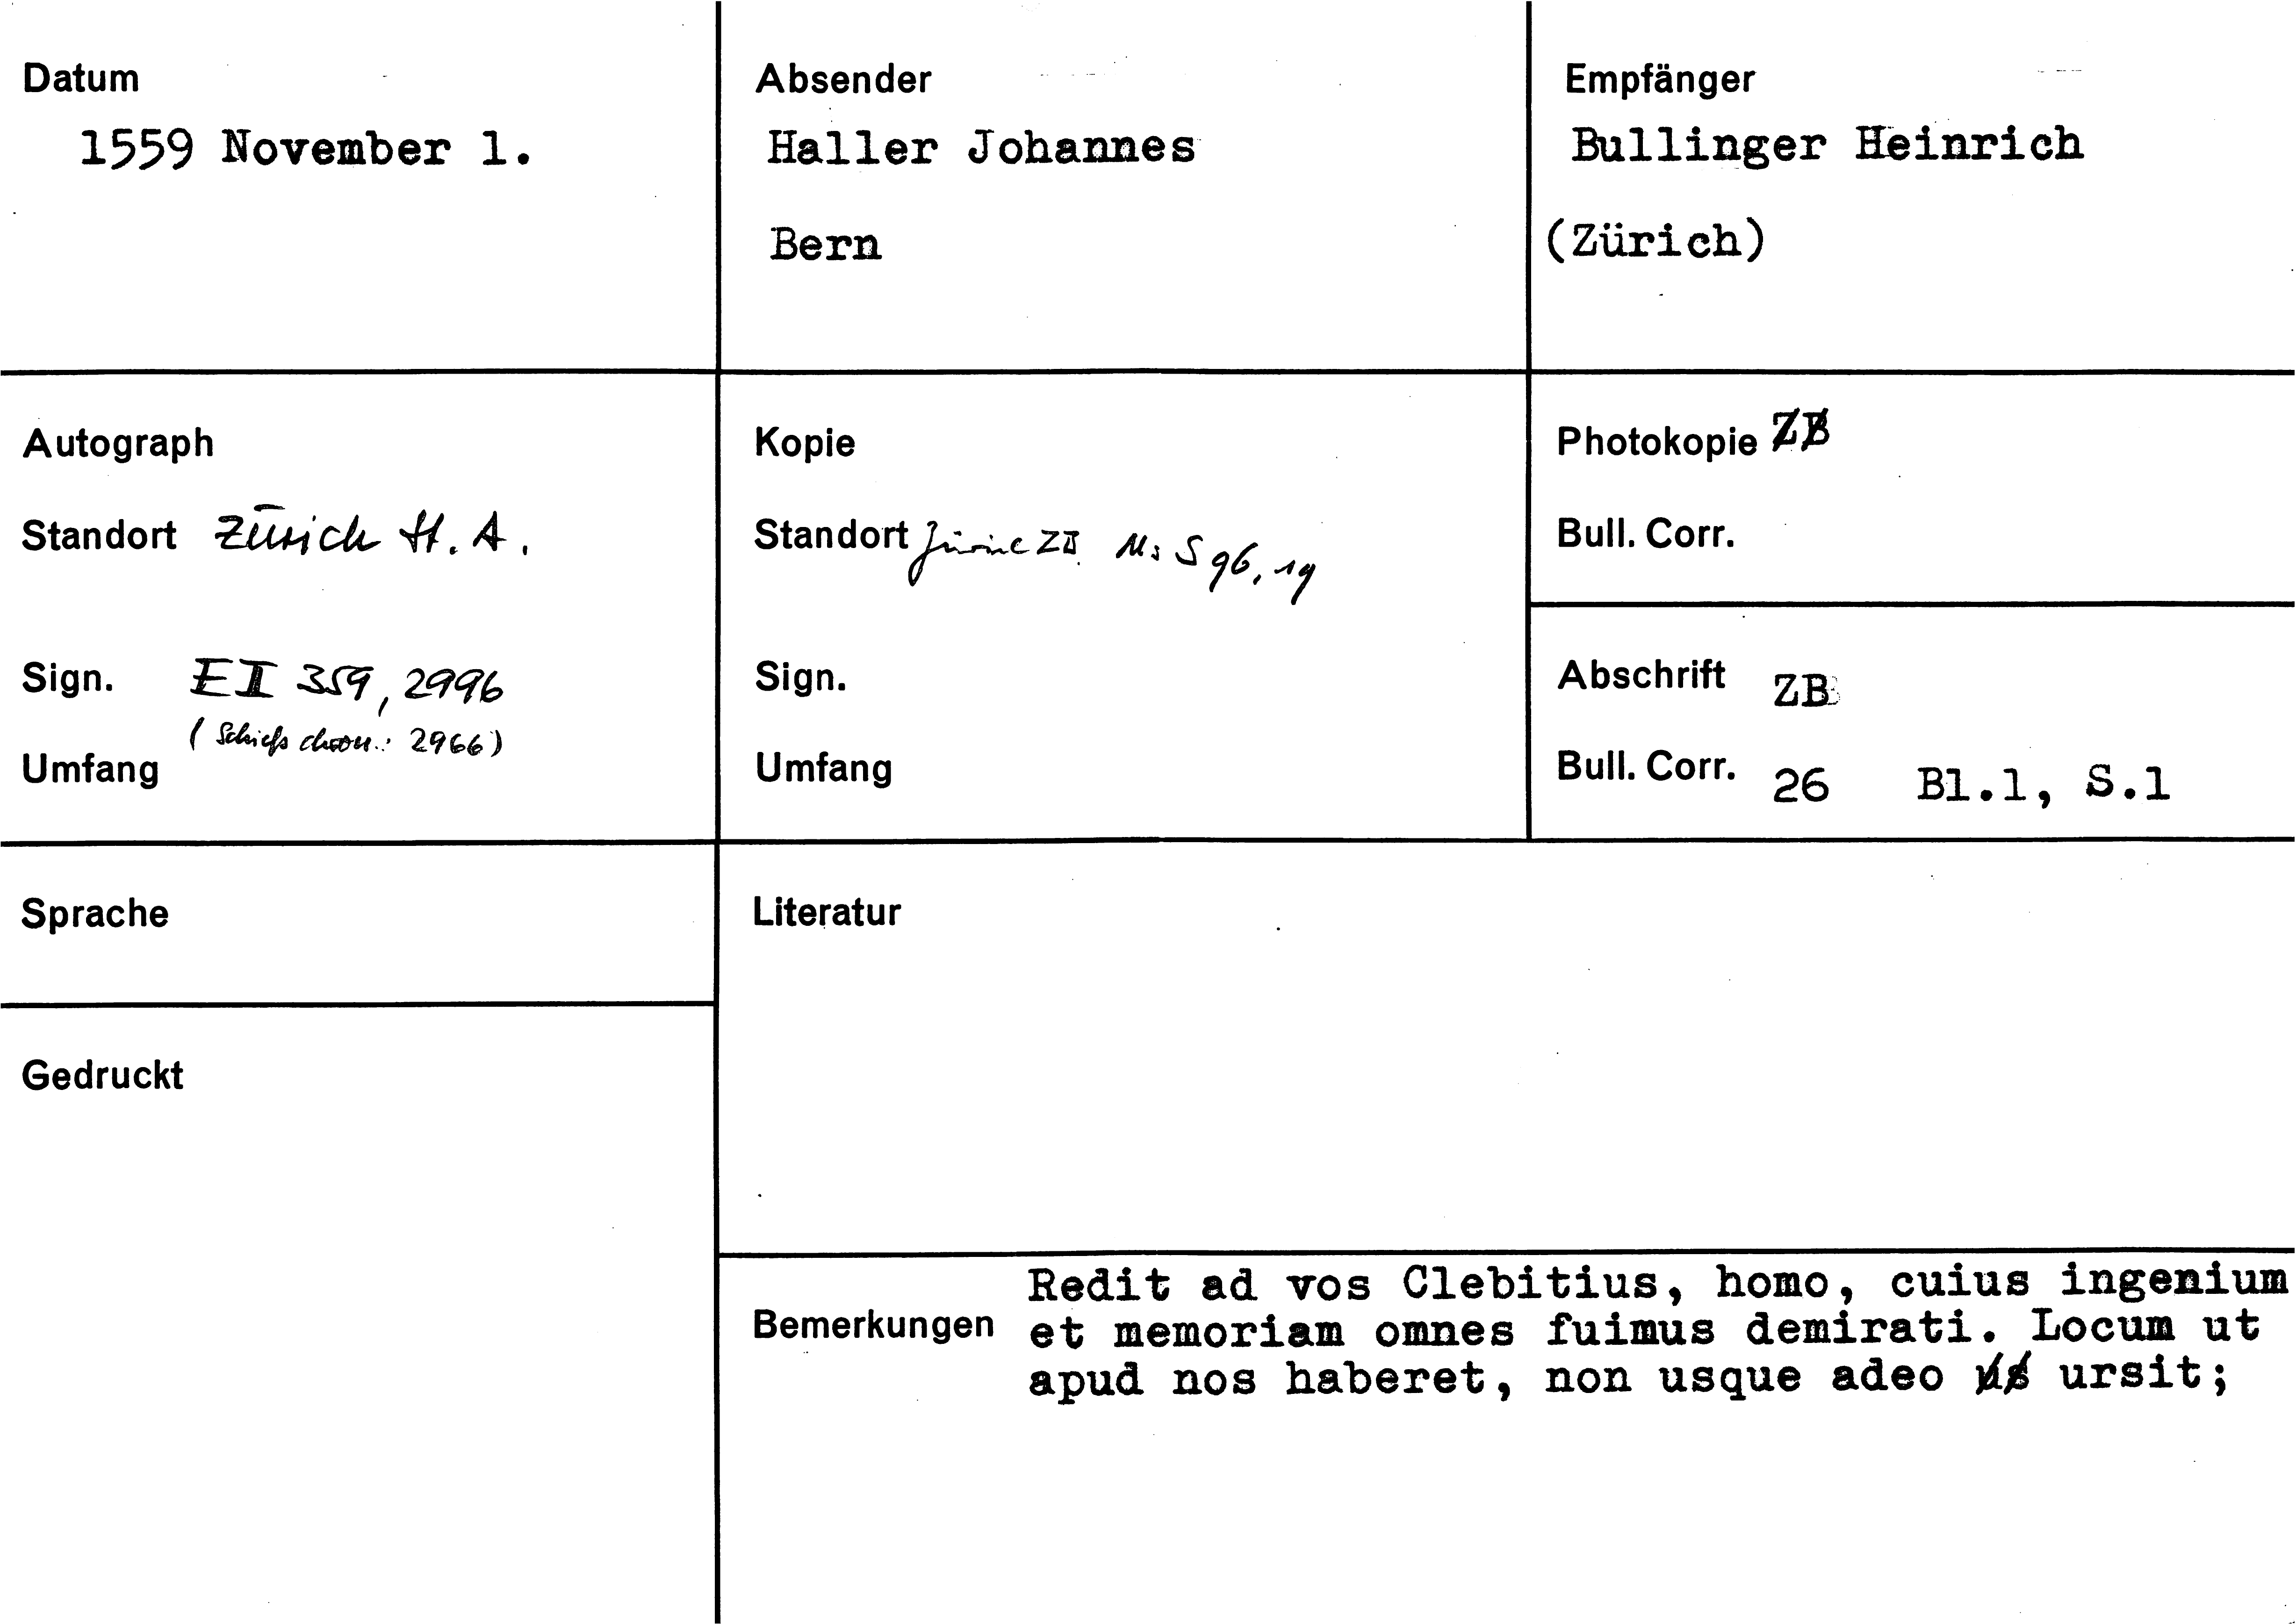 Datum
1559 November 1.
Absender
Haller Johannes
Bern
Empfänger
Bullinger Heinrich
(Zürich)
Autograph
Standort Zürich St. A.
Sign. E II 359, 2996
(Schieß chron.: 2966)
Umfang
Kopie
Standort Zürich ZB Ms S 96, 19
Sign.
Umfang
Photokopie ZB
Bull. Corr.
Abschrift ZB
Bull. Corr. 26 Bl.1, S.1
Sprache
Gedruckt
Literatur
Bemerkungen
Redit ad vos Clebitius, homo, cuius ingenium
et memoriam omnes fuimus demirati. Locum ut
apud nos haberet, non usque adeo ursit;